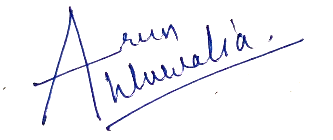 Arun
Ahluwalia.